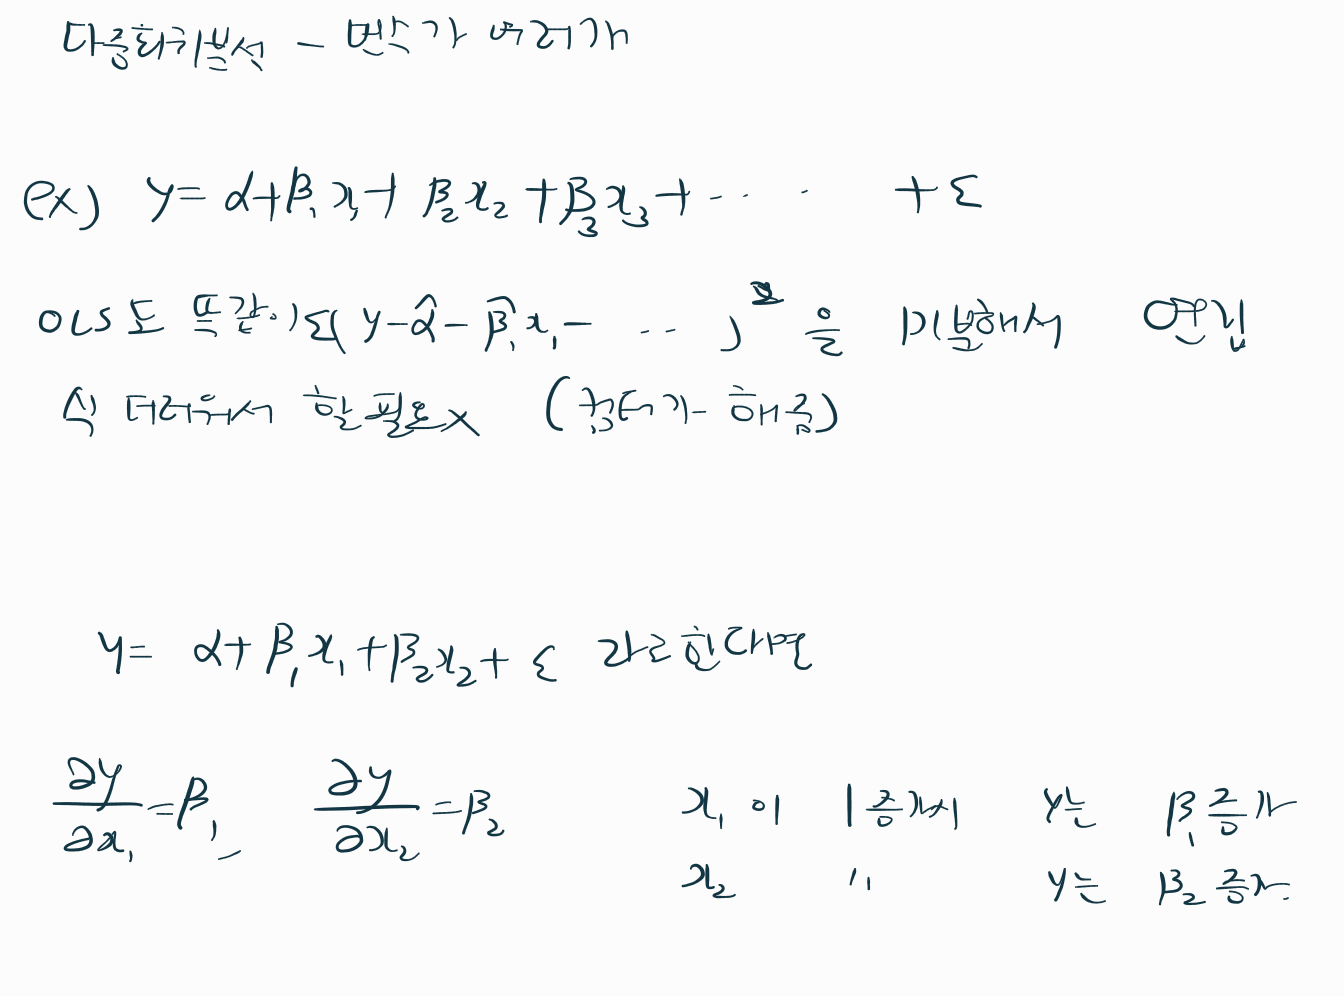 다중회귀분석 – 변수가 여러개
ex) y = α+β₁x₁+ β₂x₂ +β₃x₃+ ···· +ε
OLS도 똑같이 Σ( y-α̂-β̂₁x₁- ···· )² 을 미분해서 연립
식 더러워서 할필요x (컴터가 해줌)
y= α+β₁x₁+β₂x₂+ ε 라고한다면
∂y/∂x₁=β₁, ∂y/∂x₂=β₂
x₁이 1증가시 y는 β₁증가
x₂ 〃 y는 β₂증가.